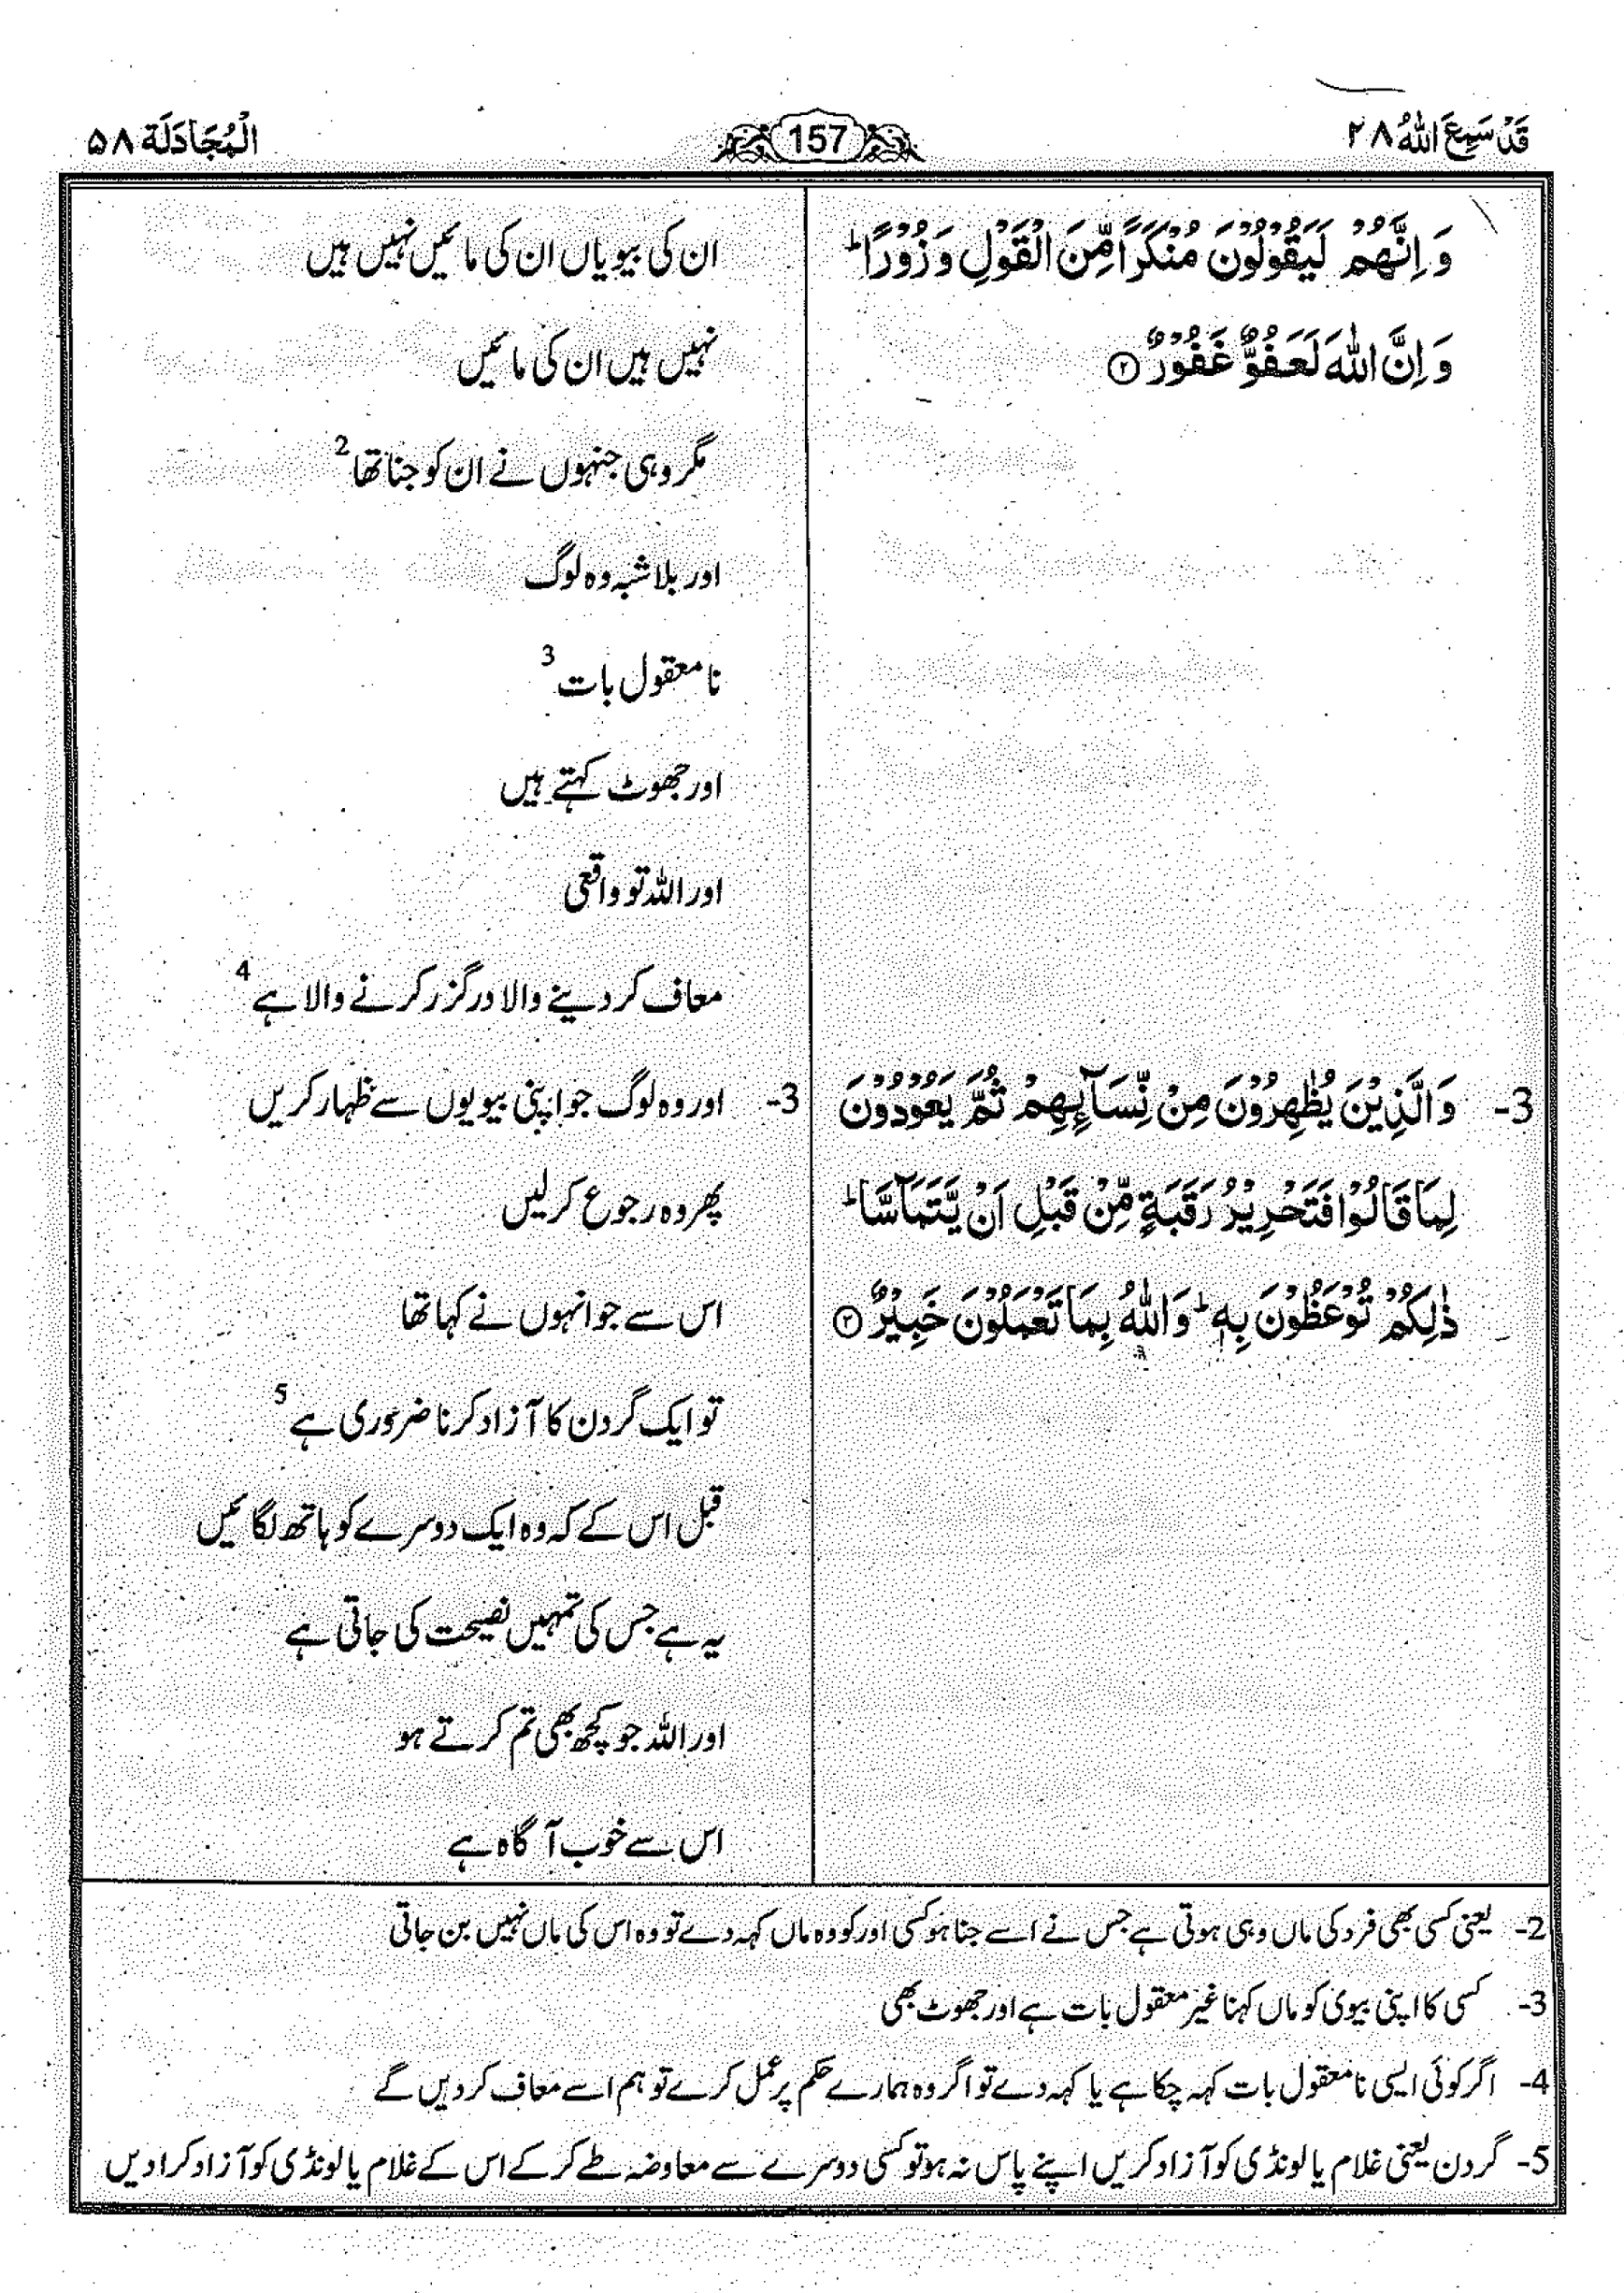 قَدْ سَمِعَ اللّٰهُ ۲۸
157
الْمُجَادَلَة ۵۸
وَ اِنَّهُمْ لَيَقُوْلُوْنَ مُنْكَرًا مِّنَ الْقَوْلِ وَ زُوْرًا ؕ
وَ اِنَّ اللّٰهَ لَعَفُوٌّ غَفُوْرٌ ۝۲
3- وَ الَّذِيْنَ يُظٰهِرُوْنَ مِنْ نِّسَآىِٕهِمْ ثُمَّ يَعُوْدُوْنَ
لِمَا قَالُوْا فَتَحْرِيْرُ رَقَبَةٍ مِّنْ قَبْلِ اَنْ يَّتَمَآسَّا ؕ
ذٰلِكُمْ تُوْعَظُوْنَ بِهٖ ؕ وَ اللّٰهُ بِمَا تَعْمَلُوْنَ خَبِيْرٌ ۝۳
ان کی بیویاں ان کی مائیں نہیں ہیں
نہیں ہیں ان کی مائیں
مگر وہی جنہوں نے ان کو جنا تھا 2
اور بلا شبہ وہ لوگ
نا معقول بات 3
اور جھوٹ کہتے ہیں
اور اللہ تو واقعی
معاف کر دینے والا درگزر کرنے والا ہے 4
3- اور وہ لوگ جو اپنی بیویوں سے ظہار کریں
پھر وہ رجوع کر لیں
اس سے جو انہوں نے کہا تھا
تو ایک گردن کا آزاد کرنا ضروری ہے 5
قبل اس کے کہ وہ ایک دوسرے کو ہاتھ لگائیں
یہ ہے جس کی تمہیں نصیحت کی جاتی ہے
اور اللہ جو کچھ بھی تم کرتے ہو
اس سے خوب آگاہ ہے
2- یعنی کسی بھی فرد کی ماں وہی ہوتی ہے جس نے اسے جنا ہو کسی اور کو وہ ماں کہہ دے تو وہ اس کی ماں نہیں بن جاتی
3- کسی کا اپنی بیوی کو ماں کہنا غیر معقول بات ہے اور جھوٹ بھی
4- اگر کوئی ایسی نا معقول بات کہہ چکا ہے یا کہہ دے تو اگر وہ ہمارے حکم پر عمل کرے تو ہم اسے معاف کر دیں گے
5- گردن یعنی غلام یا لونڈی کو آزاد کریں اپنے پاس نہ ہو تو کسی دوسرے سے معاوضہ طے کر کے اس کے غلام یا لونڈی کو آزاد کرا دیں